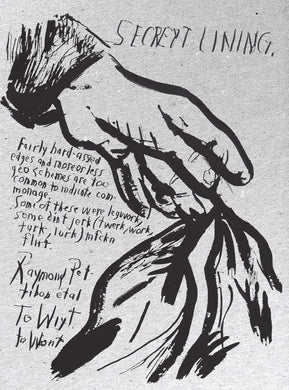 SECREYT LINING.
Fairly hard-assed
edges and more or less
geo schemes are too
common to indicate com-
monage.
Some of these were legwork,
some dint jerk (twerk, work,
turk, lurk)
flint.
Raymond Pet
tibon etal
To Wit,
to Want